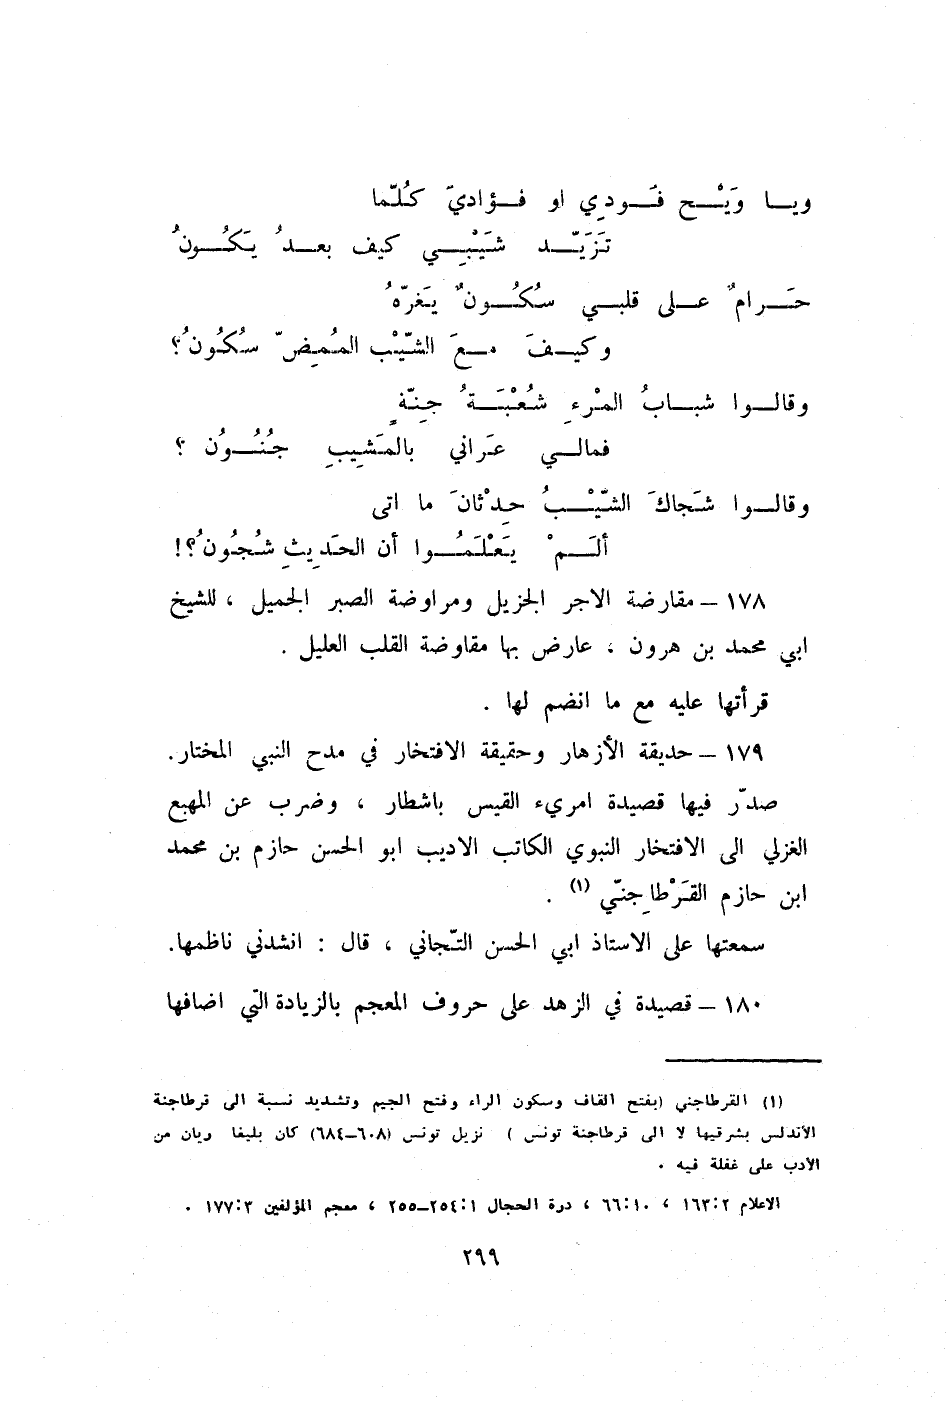 ويـــا وَيْـــح فَـــودِي او فـــؤاديّ كُلّما
تَزَيّـــد شَيْبِـــي كيف بعـــدُ يَكُـــونُ
حَـــرامٌ عـــلى قلبـــي سُكُـــونٌ يَغرّهُ
وكيـــفَ مـــعَ الشّيْب المُمِضّ سُكُونُ؟
وقالـــوا شبـــابُ المْرءِ شُعْبَـــةُ جِنّةٍ
فمالـــي عَراني بالمَشِيبِ جُنُـــون ؟
وقالـــوا شَجاكَ الشّيْـــبُ حِدْثانَ ما اتى
ألَـــمْ يَعْلَمُـــوا أن الحَدِيثِ شُجُونُ؟!
١٧٨ ــ مقارضة الاجر الجزيل ومراوضة الصبر الجميل ، للشيخ
ابي محمد بن هرون ، عارض بها مفاوضة القلب العليل .
قرأتها عليه مع ما انضم لها .
١٧٩ ــ حديقة الأزهار وحقيقة الافتخار في مدح النبي المختار.
صدّر فيها قصيدة امريء القيس باشطار ، وضرب عن المهيع
الغزلي الى الافتخار النبوي الكاتب الاديب ابو الحسن حازم بن محمد
ابن حازم القَرْطاجِنّي (١) .
سمعتها على الاستاذ ابي الحسن التّجاني ، قال : انشدني ناظمها.
١٨٠ ــ قصيدة في الزهد على حروف المعجم بالزيادة التي اضافها
(١) القرطاجني (بفتح القاف وسكون الراء وفتح الجيم وتشديد نسبة الى قرطاجنة
الأندلس بشرقيها لا الى قرطاجنة تونس ) نزيل تونس (٦٠٨ــ٦٨٤) كان بليغا ريان من
الأدب على غفلة فيه .
الاعلام ٢:١٦٣ ، ١٠:٦٦ ، درة الحجال ١:٢٥٤ــ٢٥٥ ، معجم المؤلفين ٣:١٧٧ .
٢٩٩